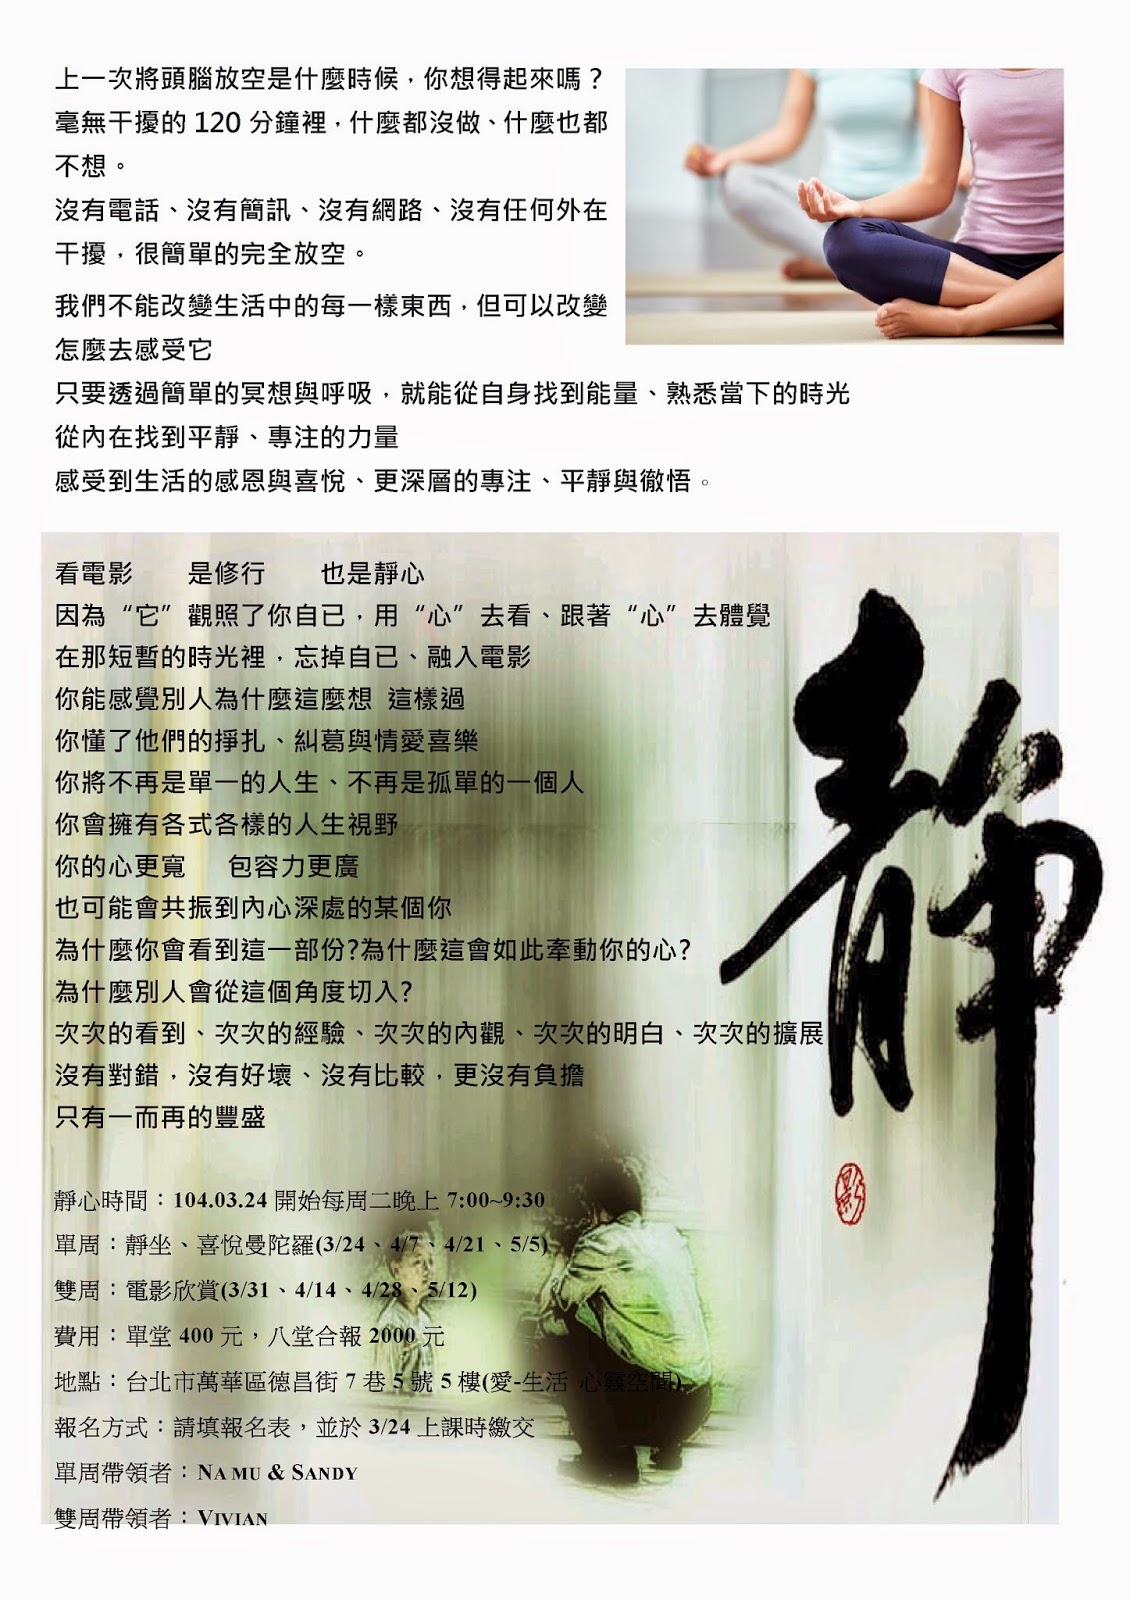 上一次將頭腦放空是什麼時候，你想得起來嗎？
毫無干擾的 120 分鐘裡，什麼都沒做、什麼也都
不想。
沒有電話、沒有簡訊、沒有網路、沒有任何外在
干擾，很簡單的完全放空。
我們不能改變生活中的每一樣東西，但可以改變
怎麼去感受它
只要透過簡單的冥想與呼吸，就能從自身找到能量、熟悉當下的時光
從內在找到平靜、專注的力量
感受到生活的感恩與喜悅、更深層的專注、平靜與徹悟。
看電影 是修行 也是靜心
因為“它”觀照了你自已，用“心”去看、跟著“心”去體覺
在那短暫的時光裡，忘掉自已、融入電影
你能感覺別人為什麼這麼想 這樣過
你懂了他們的掙扎、糾葛與情愛喜樂
你將不再是單一的人生、不再是孤單的一個人
你會擁有各式各樣的人生視野
你的心更寬 包容力更廣
也可能會共振到內心深處的某個你
為什麼你會看到這一部份?為什麼這會如此牽動你的心?
為什麼別人會從這個角度切入?
次次的看到、次次的經驗、次次的內觀、次次的明白、次次的擴展
沒有對錯，沒有好壞、沒有比較，更沒有負擔
只有一而再的豐盛
靜
影
靜心時間：104.03.24 開始每周二晚上 7:00~9:30
單周：靜坐、喜悅曼陀羅(3/24、4/7、4/21、5/5)
雙周：電影欣賞(3/31、4/14、4/28、5/12)
費用：單堂 400 元，八堂合報 2000 元
地點：台北市萬華區德昌街 7 巷 5 號 5 樓(愛-生活 心靈空間)
報名方式：請填報名表，並於 3/24 上課時繳交
單周帶領者：NA MU & SANDY
雙周帶領者：VIVIAN